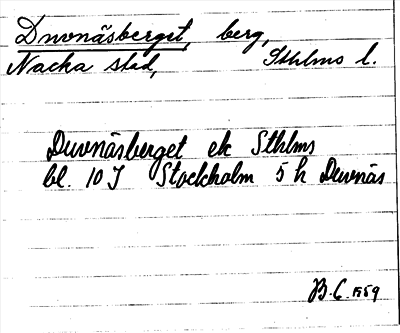 Duvnäsberget, berg,
Nacka stad, Sthlms l.
Duvnäsberget ek Sthlms
bl. 10 I Stockholm 5 h Duvnäs
B.C. 1559